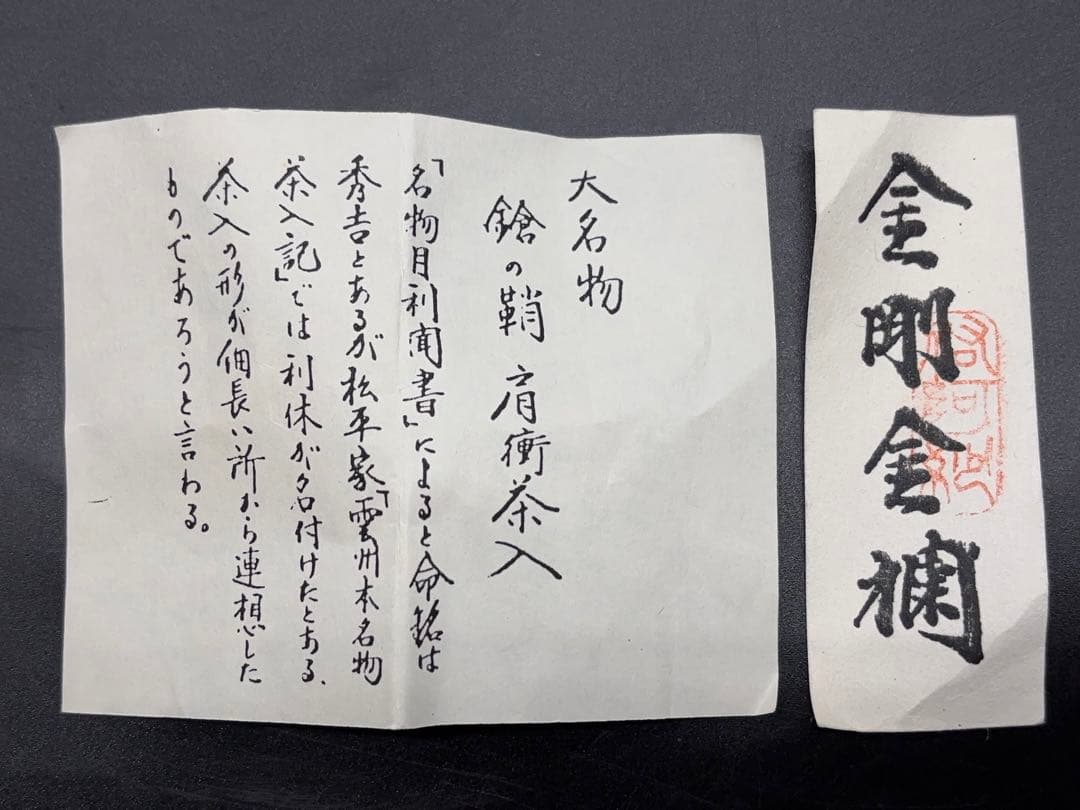 金剛金襴
大名物
鎗の鞘 肩衝茶入
「名物目利聞書」によると命銘は
秀吉とあるが松平家「雲州本名物
茶入記」では利休が名付けたとある、
茶入の形が細長い所から連想した
ものであろうと言わる。